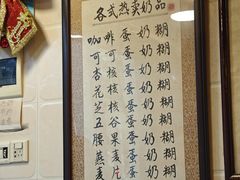 各式热卖奶品
咖啡蛋奶糊
可可蛋奶糊
杏核蛋奶糊
花核蛋奶糊
芝谷蛋奶糊
五果蛋奶糊
腰麦蛋奶糊
燕片蛋奶糊
麦